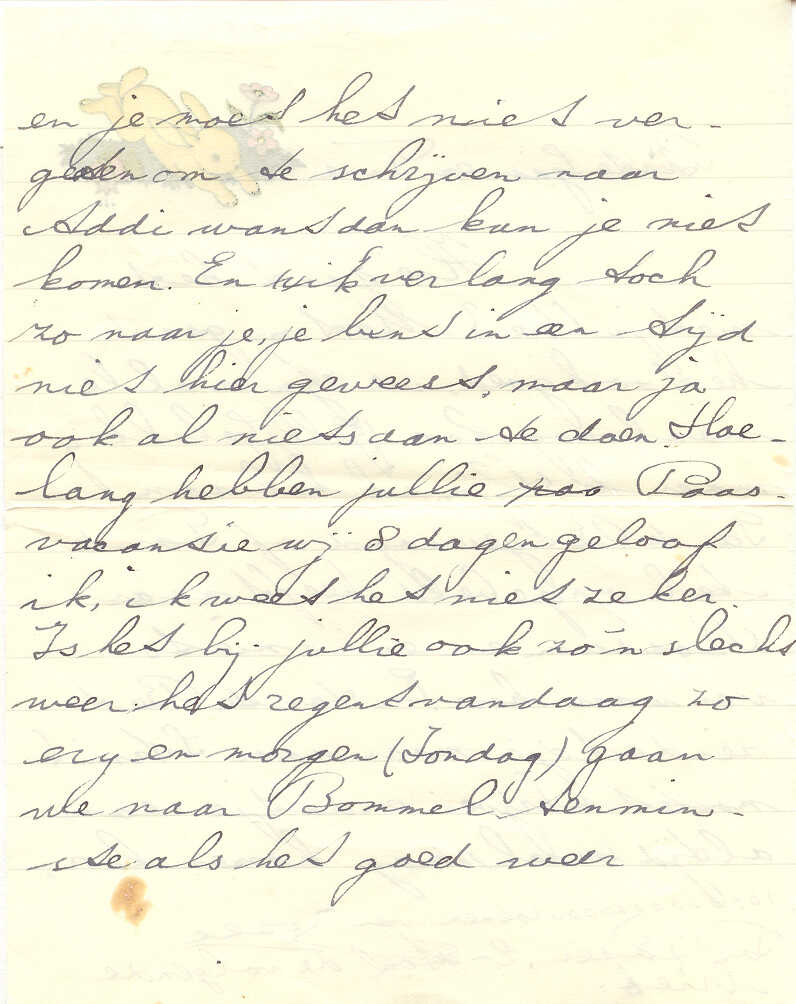 en je moet het niet ver-
geten om te schrijven naar
Addi want dan kun je niet
komen. En ik verlang toch
zo naar je, je bent in een tijd
niet hier geweest, maar ja
ook al niets aan te doen. Hoe-
lang hebben jullie Paas-
vacantie wij 8 dagen geloof
ik, ik weet het niet zeker.
Is het bij jullie ook zo'n slecht
weer. het regent vandaag zo
erg en morgen (Zondag) gaan
we naar Bommel. tenmin-
ste als het goed weer